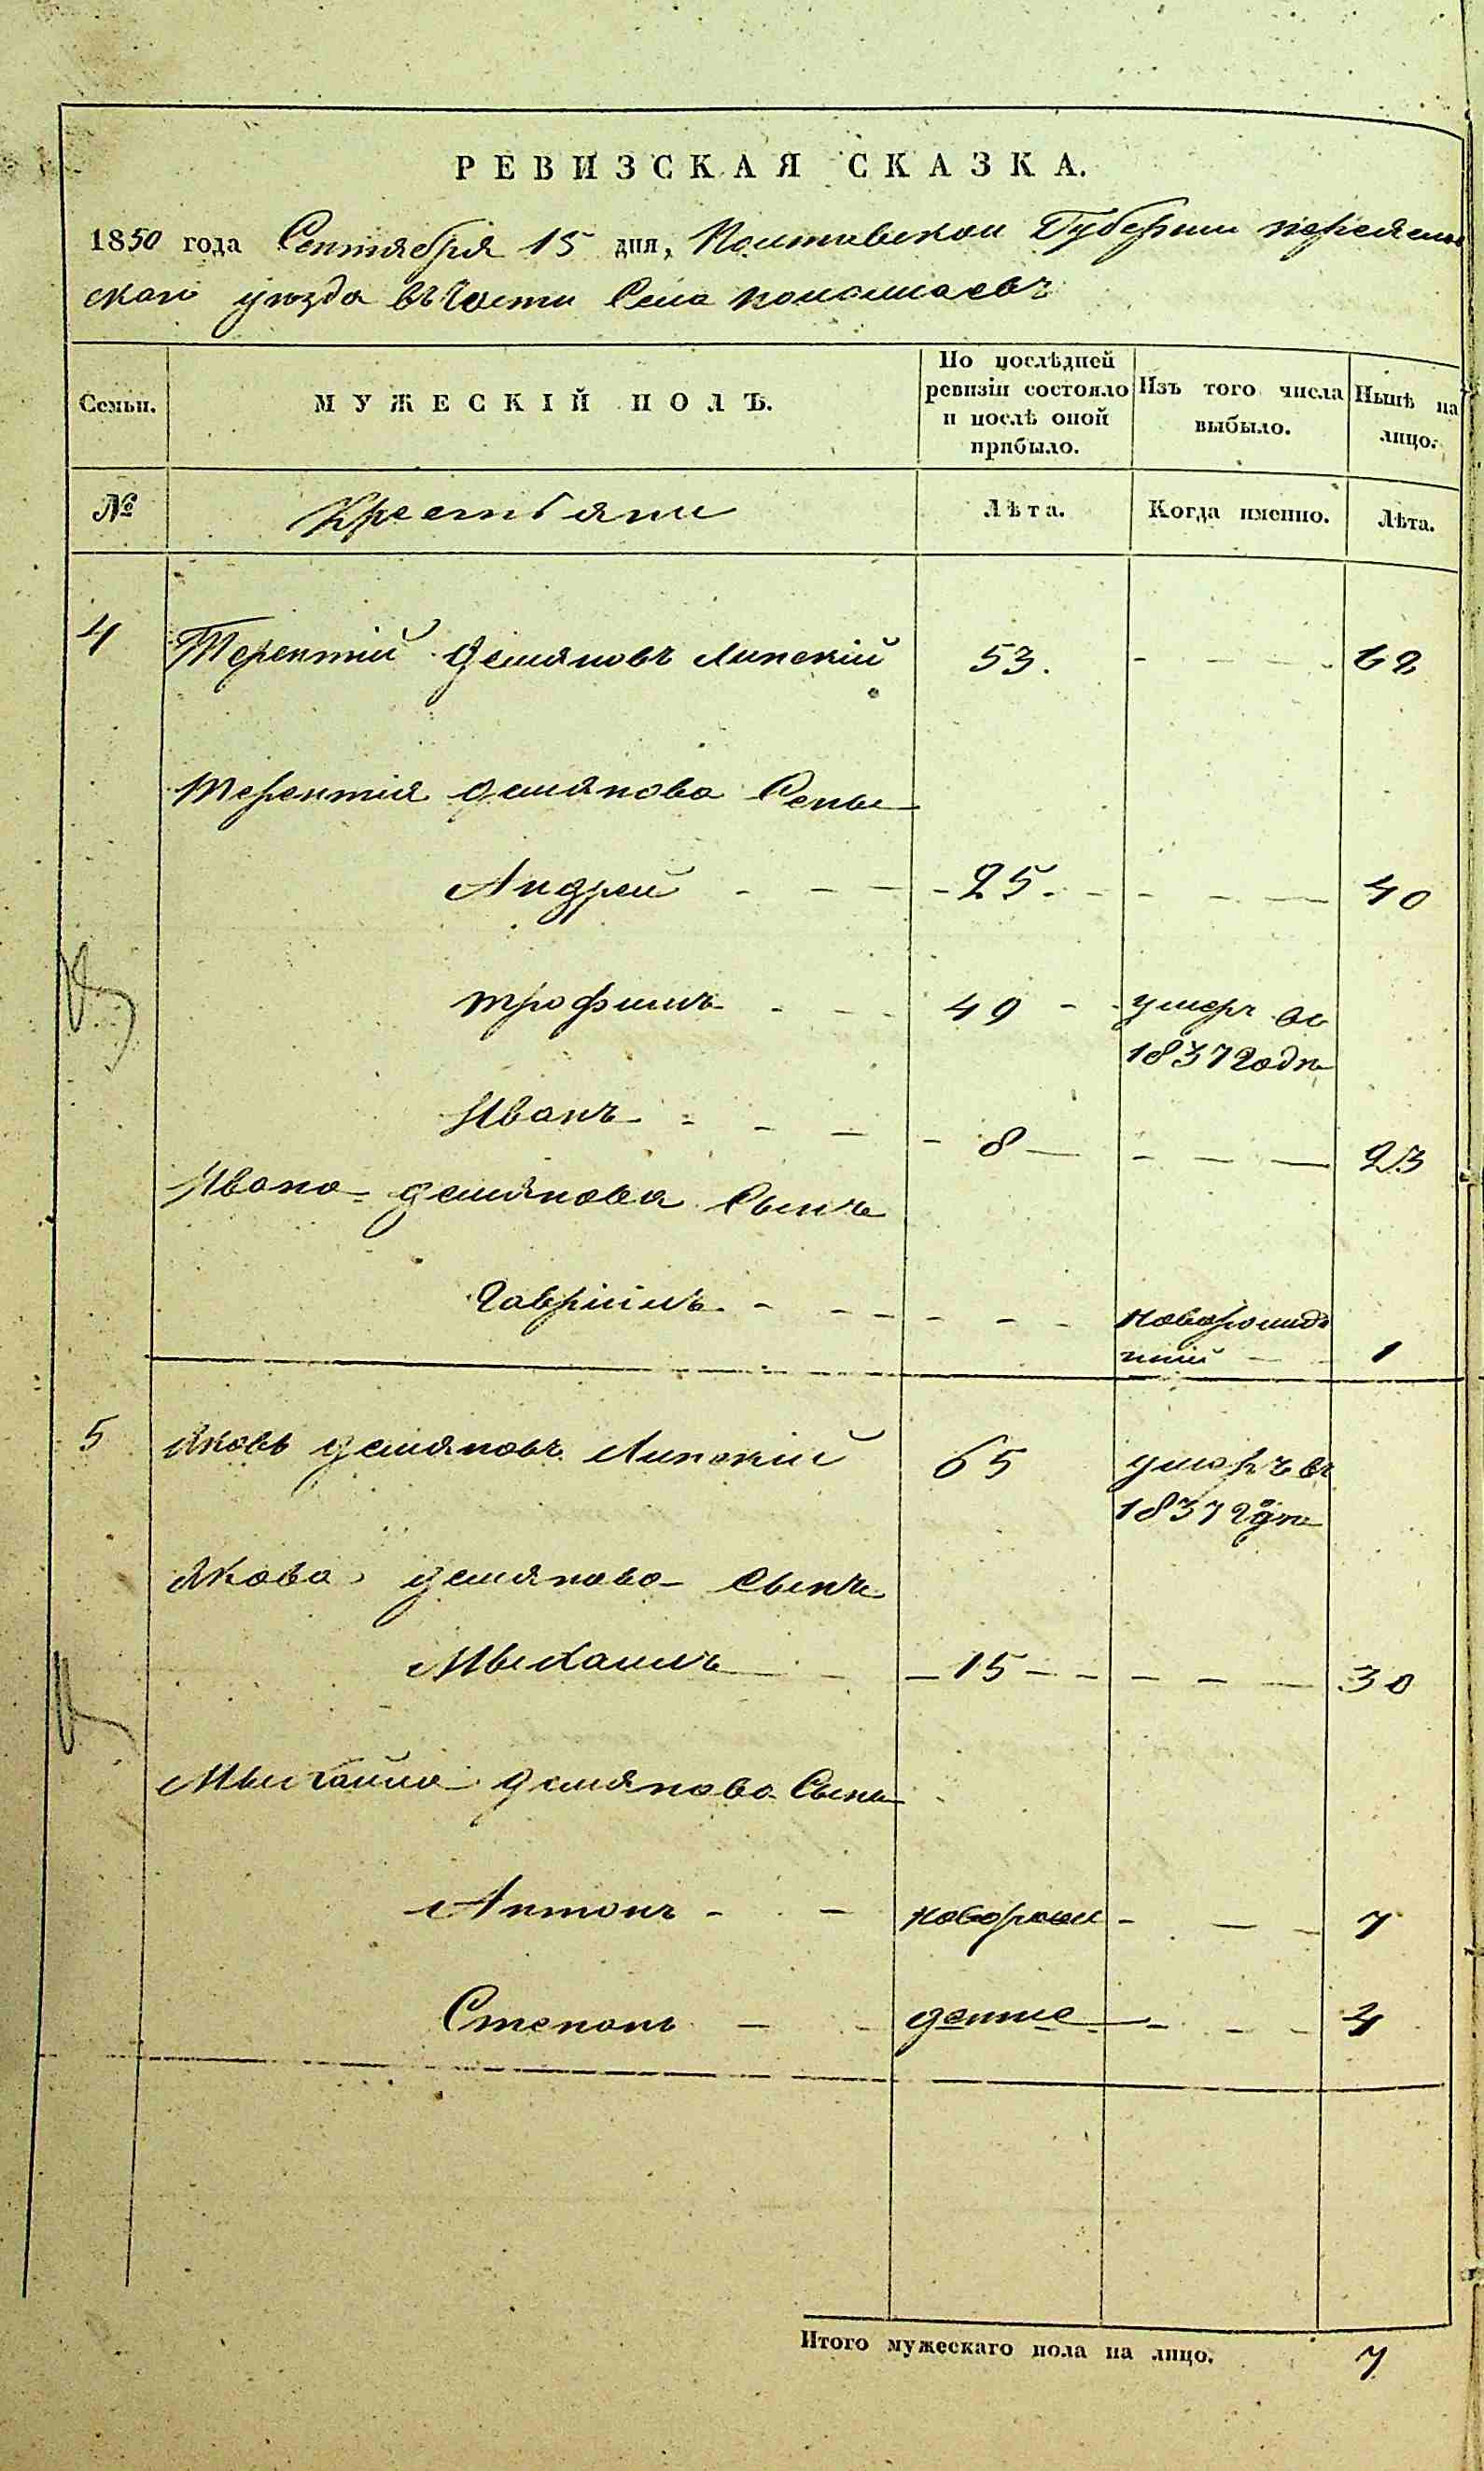 РЕВИЗСКАЯ СКАЗКА.
1850 года Сентября 15 дня, Полтавской Губернии переяслов
скаго уезда въ Части Села помоклаевъ
Семьи.
МУЖЕСКІЙ ПОЛЪ.
По послѣдней
ревизіи состояло
и послѣ оной
прибыло.
Изъ того числа
выбыло.
Нынѣ на
лицо.
№ Крестьяни Лѣта. Когда именно. Лѣта.
4 Терентій демяновъ Липскій 53. 68
терентія демянова Сены
Андрей 25 40
трофимъ 49 умеръ во
1837 Годѣ
Иванъ 8 23
Ивана демянова Сынъ
Гавріилъ новорожде
ний 1
5 Яковъ демяновъ Липскій 65 умеръ въ
1837 Годѣ
Якова демянова сынъ
Мыхаилъ 15 30
Мыхаила демянова Сыны
Антонъ новорож 7
Степанъ денние 4
Итого мужескаго пола на лицо. 7